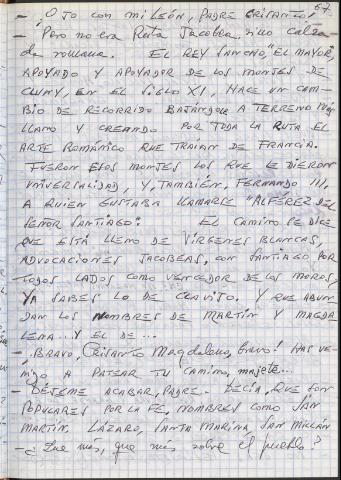 67
- ¡Ojo con mi León, Padre Crisanto!
- Pero no era Ruta Jacobea, sino calza-
da romana. EL REY SANCHO, "EL MAYOR",
APOYADO Y APOYADOR DE LOS MONJES DE
CLUNY, EN EL SIGLO XI, HACE UN CAM-
BIO DE RECORRIDO BAJÁNDOLE A TERRENO MÁS
LLANO Y CREANDO POR TODA LA RUTA EL
ARTE ROMÁNICO QUE TRAIAN DE FRANCIA.
FUERON ESOS MONJES LOS QUE LE DIERON
UNIVERSALIDAD, Y, TAMBIÉN, FERNANDO III,
A QUIEN GUSTABA LLAMARSE "ALFÉREZ DEL
SEÑOR SANTIAGO". EL CAMINO SE DICE
QUE ESTÁ LLENO DE VÍRGENES BLANCAS,
ADVOCACIONES JACOBEAS, CON SANTIAGO POR
TODOS LADOS COMO VENCEDOR DE LOS MOROS,
YA SABES LO DE CLAVIJO. Y QUE ABUN
DAN LOS NOMBRES DE MARTÍN Y MAGDA
LENA... Y EL DE...
- ¡BRAVO, CRISANTO Magdaleno, bravo! HAS VE-
NIDO A PATEAR TU CAMINO, majete...
- DÉJEME ACABAR, PADRE. DECÍA, QUE SON
POPULARES POR LA FE, NOMBRES COMO SAN
MARTÍN, LÁZARO, SANTA MARINA, SAN MILLÁN
- ¿Qué más, que más sobre el pueblo?